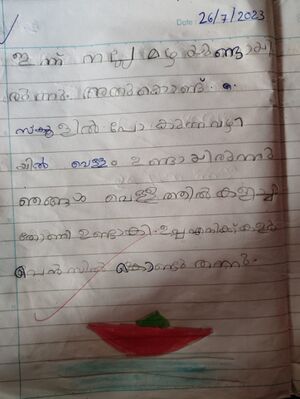 Date: 26/7/2023
ഇന്ന് നല്ല മഴ ഉണ്ടായി
രുന്നു. അതുകൊണ്ട്.
സ്കൂളിൽ പോകുന്ന വഴി
യിൽ വെള്ളം ഉണ്ടായിരുന്നു
ഞങ്ങൾ വെള്ളത്തിൽ കളിച്ചു
തോണി ഉണ്ടാക്കി.
പെൻസിൽ കൊണ്ടു തന്നു.